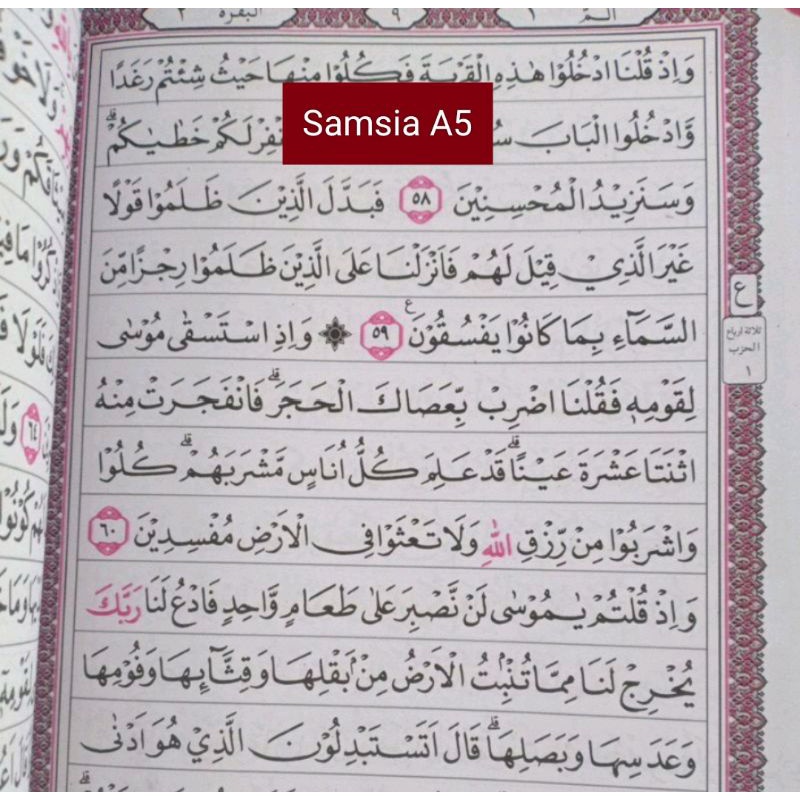 البقرة ٢
٩
الٓمّ ١
وَاِذْ قُلْنَا ادْخُلُوْا هٰذِهِ الْقَرْيَةَ فَكُلُوْا مِنْهَا حَيْثُ شِئْتُمْ رَغَدًا
وَّادْخُلُوا الْبَابَ لَكُمْ خَطٰيٰكُمْ ۗ
Samsia A5
وَسَنَزِيْدُ الْمُحْسِنِيْنَ ٥٨ فَبَدَّلَ الَّذِيْنَ ظَلَمُوْا قَوْلًا
غَيْرَ الَّذِيْ قِيْلَ لَهُمْ فَاَنْزَلْنَا عَلَى الَّذِيْنَ ظَلَمُوْا رِجْزًا مِّنَ
السَّمَاۤءِ بِمَا كَانُوْا يَفْسُقُوْنَ ࣖ ٥٩ ۞ وَاِذِ اسْتَسْقٰى مُوْسٰى
ع
ثلاثة ارباع
الحزب
١
لِقَوْمِهٖ فَقُلْنَا اضْرِبْ بِّعَصَاكَ الْحَجَرَۗ فَانْفَجَرَتْ مِنْهُ
اثْنَتَا عَشْرَةَ عَيْنًا ۗ قَدْ عَلِمَ كُلُّ اُنَاسٍ مَّشْرَبَهُمْ ۗ كُلُوْا
وَاشْرَبُوْا مِنْ رِّزْقِ اللّٰهِ وَلَا تَعْثَوْا فِى الْاَرْضِ مُفْسِدِيْنَ ٦٠
وَاِذْ قُلْتُمْ يٰمُوْسٰى لَنْ نَّصْبِرَ عَلٰى طَعَامٍ وَّاحِدٍ فَادْعُ لَنَا رَبَّكَ
يُخْرِجْ لَنَا مِمَّا تُنْۢبِتُ الْاَرْضُ مِنْۢ بَقْلِهَا وَقِثَّاۤىِٕهَا وَفُوْمِهَا
وَعَدَسِهَا وَبَصَلِهَا ۗ قَالَ اَتَسْتَبْدِلُوْنَ الَّذِيْ هُوَ اَدْنٰى